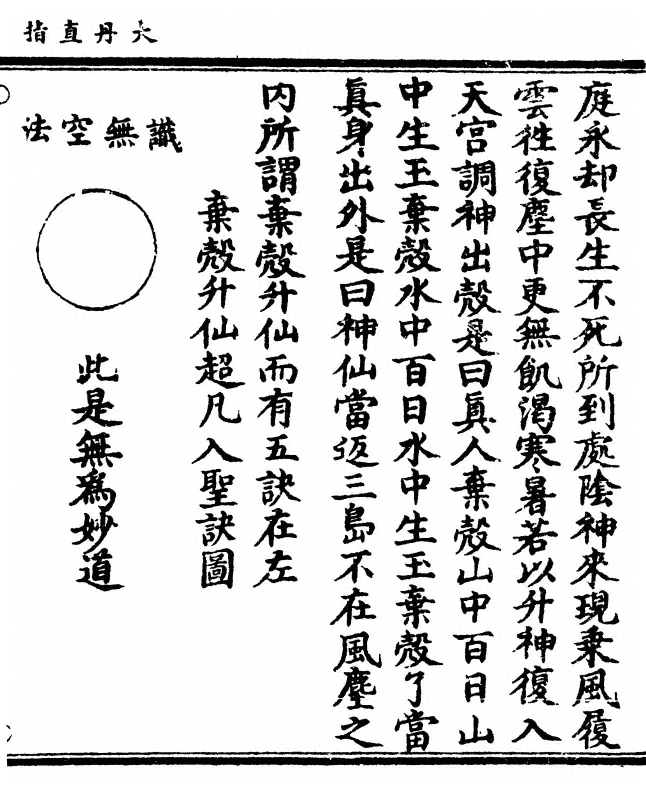 大丹直指
庭永却長生不死所到處陰神來現乗風履
雲徃復塵中更無飢渴寒暑若以升神復入
天宫調神出殻是曰眞人棄殻山中百日山
中生玉棄殻水中百日水中生玉棄殻了當
眞身出外是曰神仙當返三島不在風塵之
内所謂棄殻升仙而有五訣在左
棄殻升仙超凡入聖訣圖
識無空法
此是無爲妙道